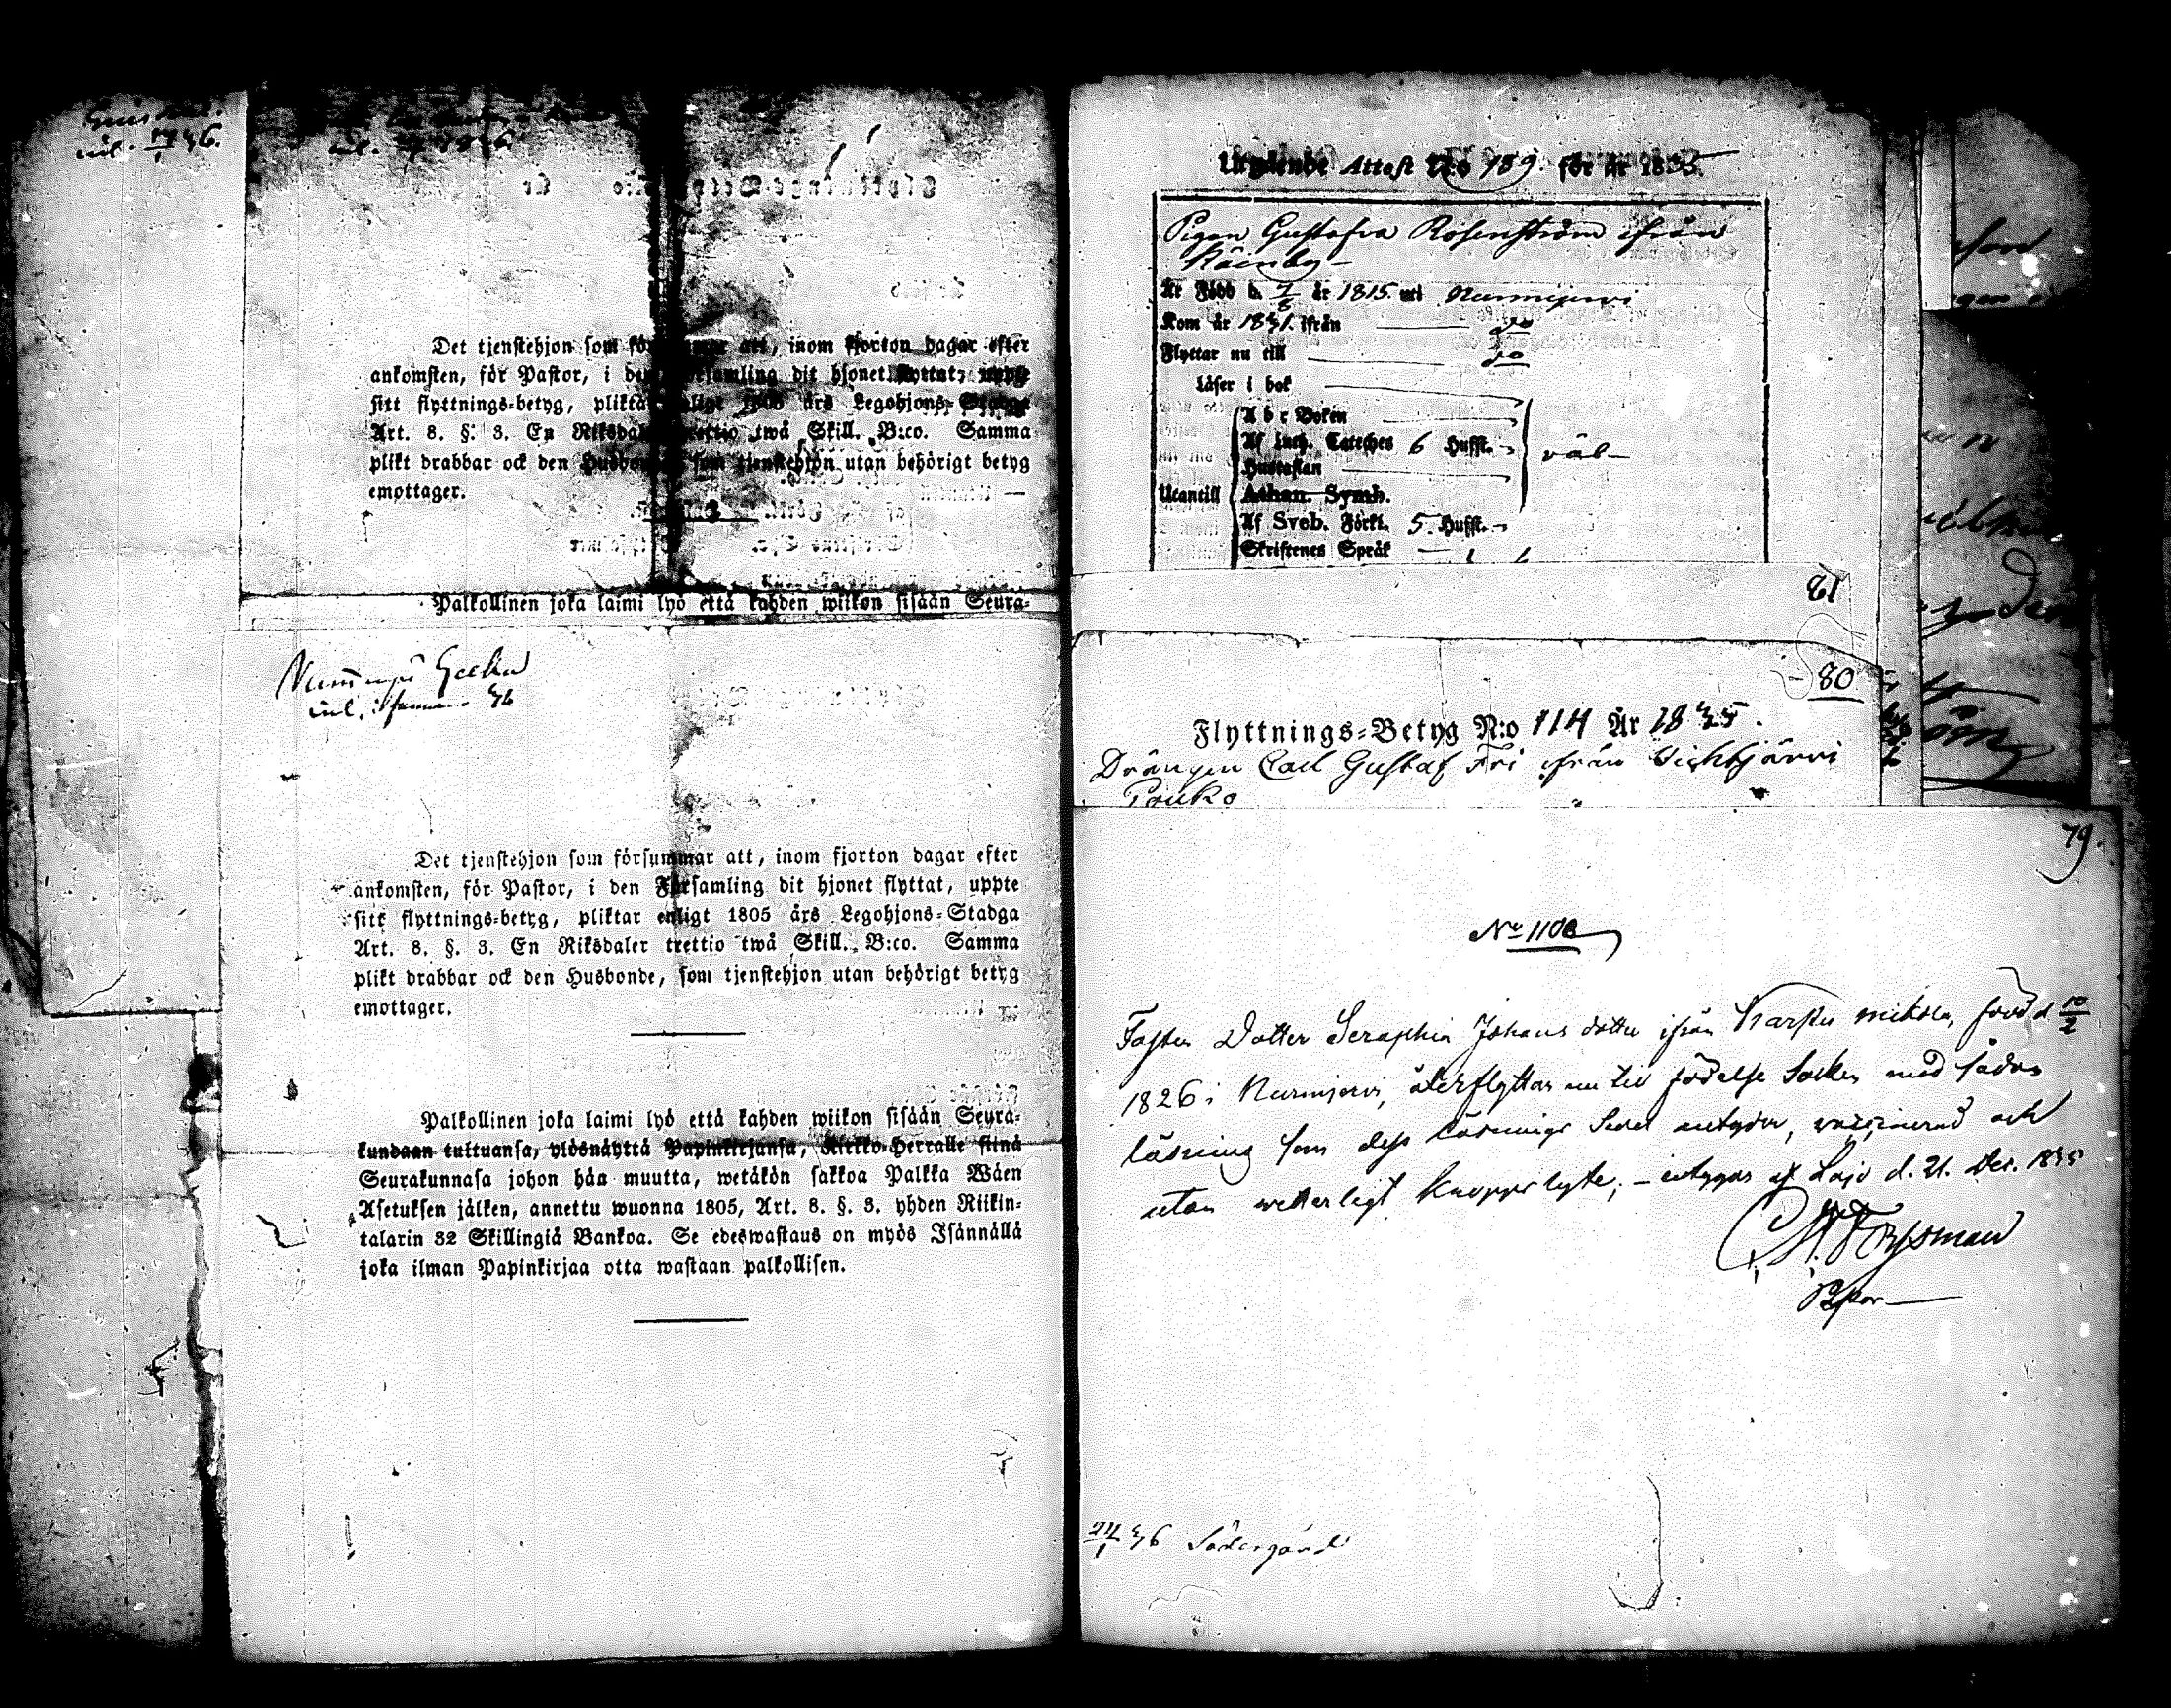 Det tjenstehjon som att, inom fjorton dagar efter
ankomsten, för Pastor, i den församling dit hjonet flyttat, uppte
sitt flyttnings-betyg, pliktar enligt 1805 års Legohjons-Stadga
Art. 8. §. 3. En Riksdaler trettio twå Skill. B:co. Samma
plikt drabbar ock den Husbonde, som tjenstehjon utan behörigt betyg
emottager.
Palkollinen joka laimi lyö että kahden wiikon sisään Seura-
ankomsten, för Pastor, i den Församling dit hjonet flyttat, uppte
Det tjenstehjon som försummar att, inom fjorton dagar efter
ankomsten, för Pastor, i den Församling dit hjonet flyttat, uppte
sitt flyttnings-betyg, pliktar enligt 1805 års Legohjons-Stadga
Art. 8. §. 3. En Riksdaler trettio twå Skill. B:co. Samma
plikt drabbar ock den Husbonde, som tjenstehjon utan behörigt betyg
emottager.
Palkollinen joka laimi lyö että kahden wiikon sisään Seura-
kundaan tultuansa, ylösnäyttä Papinkirjansa, Kirkko-Herralle siinä
Seurakunnasa johon hän muutta, wetäkön sakkoa Palkka Wäen
Asetuksen jälken, annettu wuonna 1805, Art. 8. §. 3. yhden Riikin-
talarin 32 Skillingiä Bankoa. Se edeswastaus on myös Isännällä
joka ilman Papinkirjaa otta wastaan palkollisen.
Utgående Attest N:o 189. för år 1835.
Pigan Gustafva Rosenström ifrån
Är Född d. 7/8 år 1815. uti Nurmijervi
Kom år 1831. ifrån do
Flyttar nu till do
läser i bok
A b c Boken
Af Luth. Cateches 6 Hufst.
Hustaflan
väl
Utantill
Athan. Symb.
Af Sveb. Förkl. 5. Hufst.
Skriftenes Språk
81
80
Flyttnings-Betyg N:o 114 År 1835.
Drängen Carl Gustaf Fri ifrån Wichtjärvi
Pouko
79.
No 110
Dotter Seraphia Johans dotter ifrån Karstu mikola, född d 10/2
1826 i Nurmijervi, återflyttar nu till födelse Socken med sådan
läsning som dess läsnings Sedel antyder, vaccinerad och
utan wetterligt kropps lyte; – intygas af Lojo d. 21. Dec. 1835
C. H. Forssman
Pastor
24/1 36 Södergård